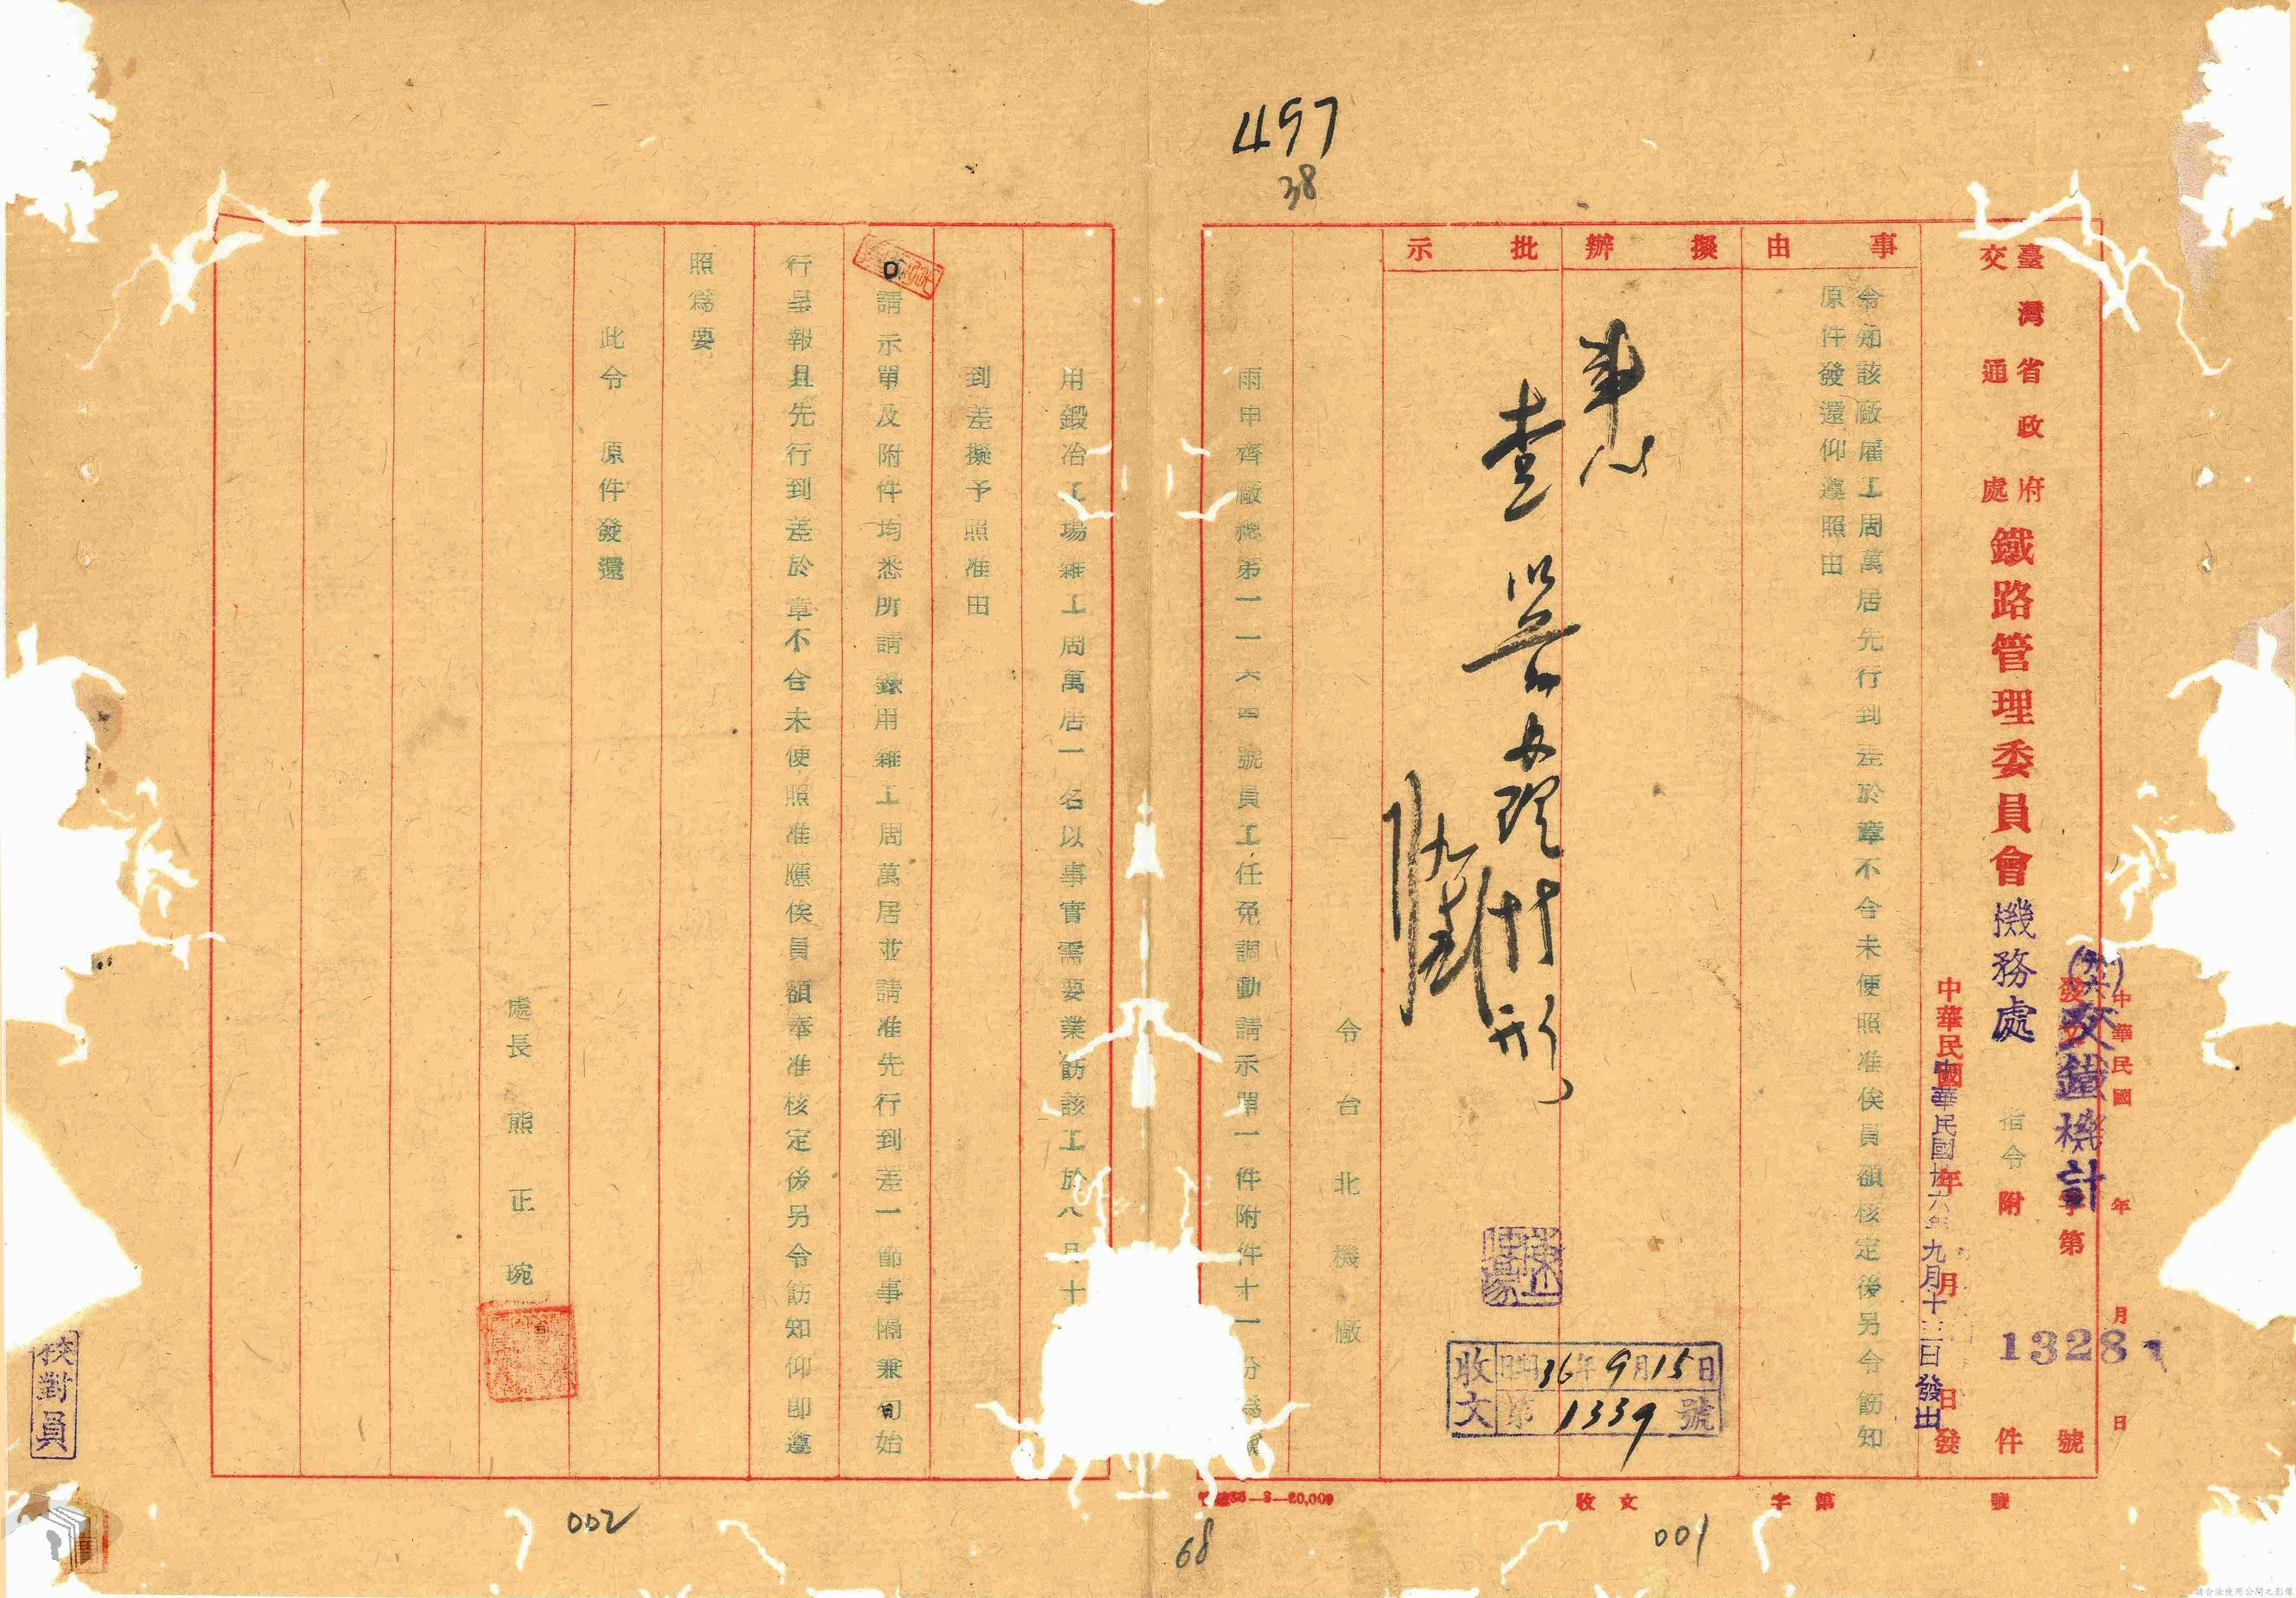 497
38
中華民國 年 月 日
發文 字第 號
(卅六)交鐵機計
13281
臺灣省政府
交通處
鐵路管理委員會機務處
指令 附 件
中華民國 年 月 日發
中華民國卅六年九月十三日發出
事由
擬辦
批示
令知該廠雇工周萬居先行到差於章不合未便照准俟員額核定後另令飭知
原件發還仰遵照由
查
收文
日期36年9月15日
第1339號
令台北機廠
雨申齊廠總第一一六四號員工任免調動請示單一件附件十一份為
用鍛冶工場雜工周萬居一名以事實需要業飭該工於八月十
到差擬予照准由
請示單及附件均悉所請錄用雜工周萬居並請准先行到差一節事隔兼旬始
行呈報且先行到差於章不合未便照准應俟員額奉准核定後另令飭知仰即遵
照為要
此令 原件發還
處長 熊正琬
校對員
收文 字第 號
36—3—20,000
001
002
68
請合法使用公開之影像